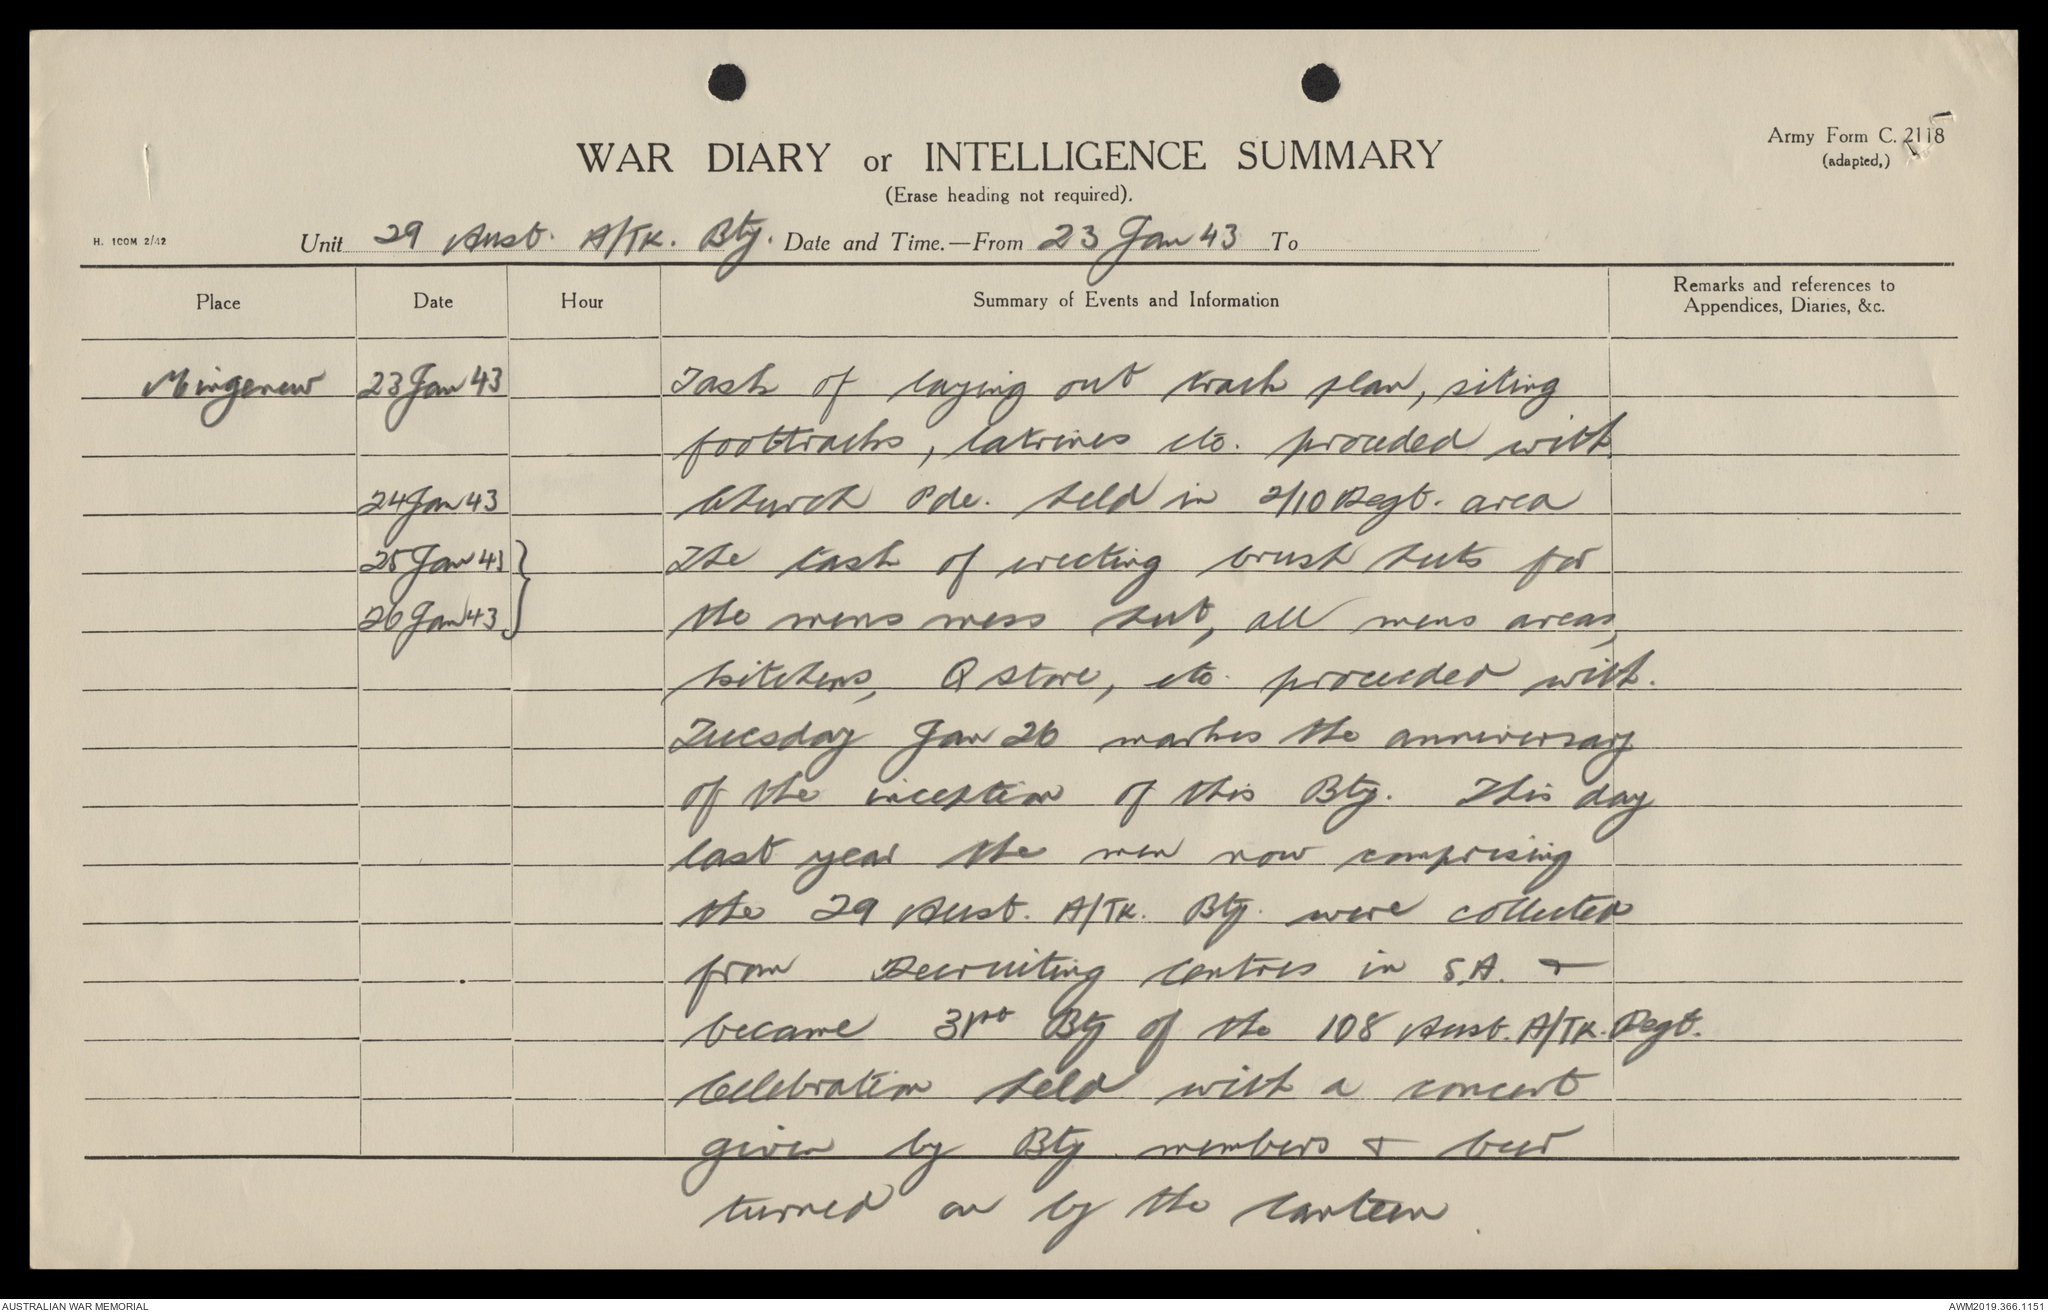 Army Form C. 2118
(adapted,)
WAR DIARY or INTELLIGENCE SUMMARY
(Erase heading not required).
H. 1COM 2/42
Unit 29 Aust. A/TK. Bty. Date and Time.—From 23 Jan 43 To
Place Date Hour Summary of Events and Information Remarks and references to
Appendices, Diaries, &c.
Mingenew 23 Jan 43 Task of laying out track plan, siting
foottracks, latrines etc. proceded with
24 Jan 43 Church Pde. held in 2/10 Regt. area
25 Jan 43 The task of erecting brush huts for
26 Jan 43 the mens mess hut, all mens areas,
kitchens, Q store, etc. proceeded with.
Tuesday Jan 26 marks the anniversary
of the inception of this Bty. This day
last year the men now comprising
the 29 Aust. A/TK. Bty. were collected
from Recruiting Centres in S.A. &
became 31st Bty of the 108 Aust. A/TK. Regt.
Celebration held with a concert
given by Bty members & beer
turned on by the Canteen.
AUSTRALIAN WAR MEMORIAL AWM2019.366.1151